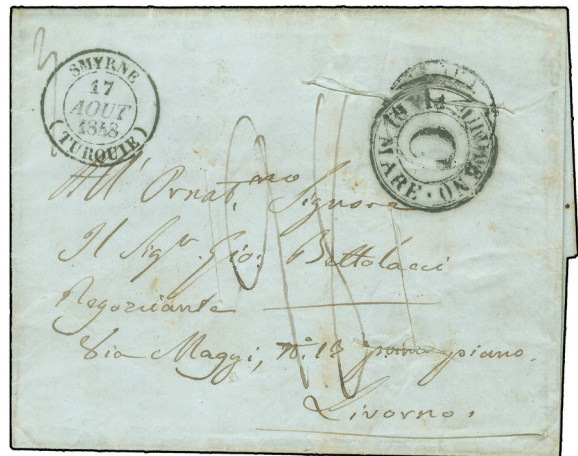 SMYRNE
17
AOUT
1848
(TURQUIE)
VIA DI MARE
C
All' Ornat.mo Signore
Il Sigr. Gio. Bettolacci
Negoziante
Via Maggi, No. 13 primo piano.
Livorno.